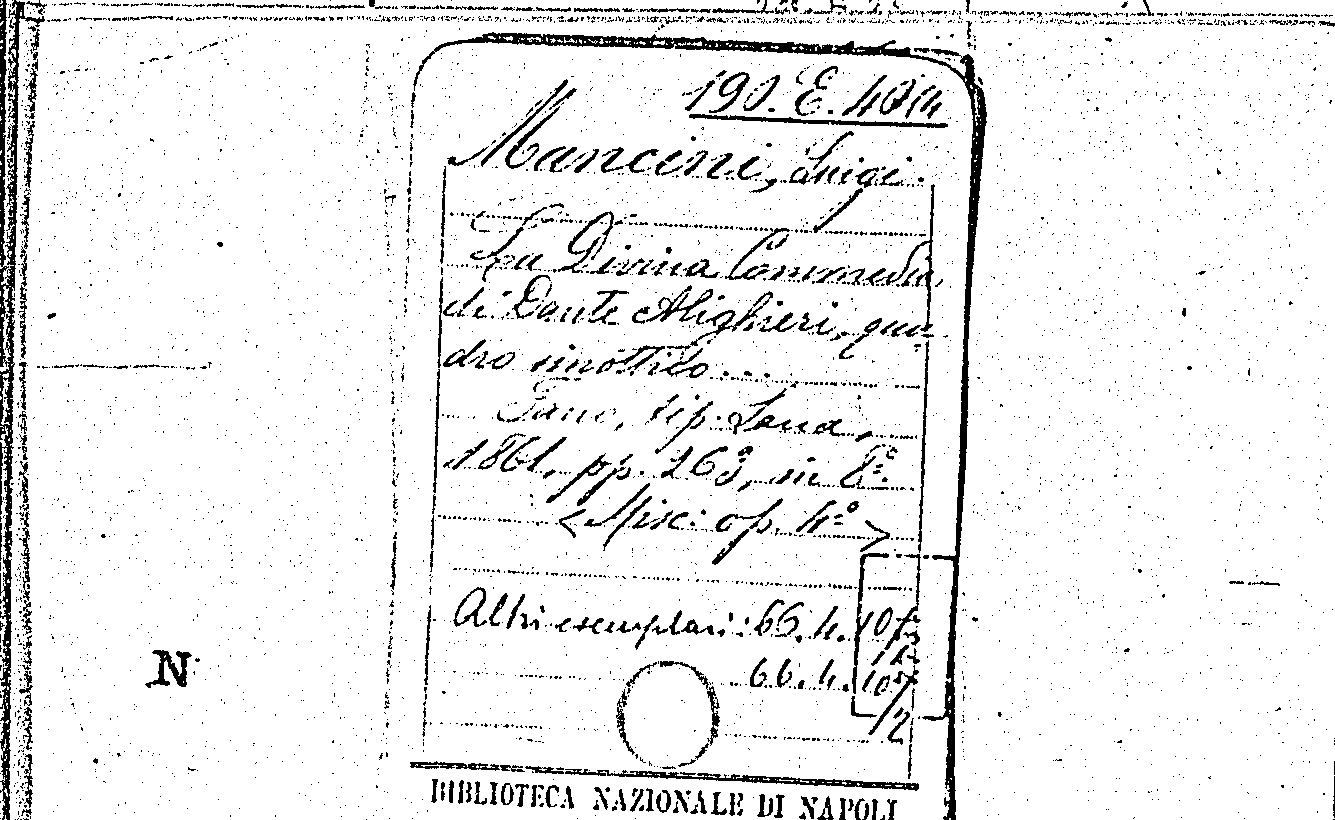 190. E. 40
Mancini, Luigi.
La Divina Commedia
di Dante Alighieri, qua-
dro sinottico...
Fano, tip. Lana,
1861, pp. 263, in 8º.
<Misc: op. 4º>
Altri esemplari: 66. 4. 107
66. 4. 107
/2
N
BIBLIOTECA NAZIONALE DI NAPOLI